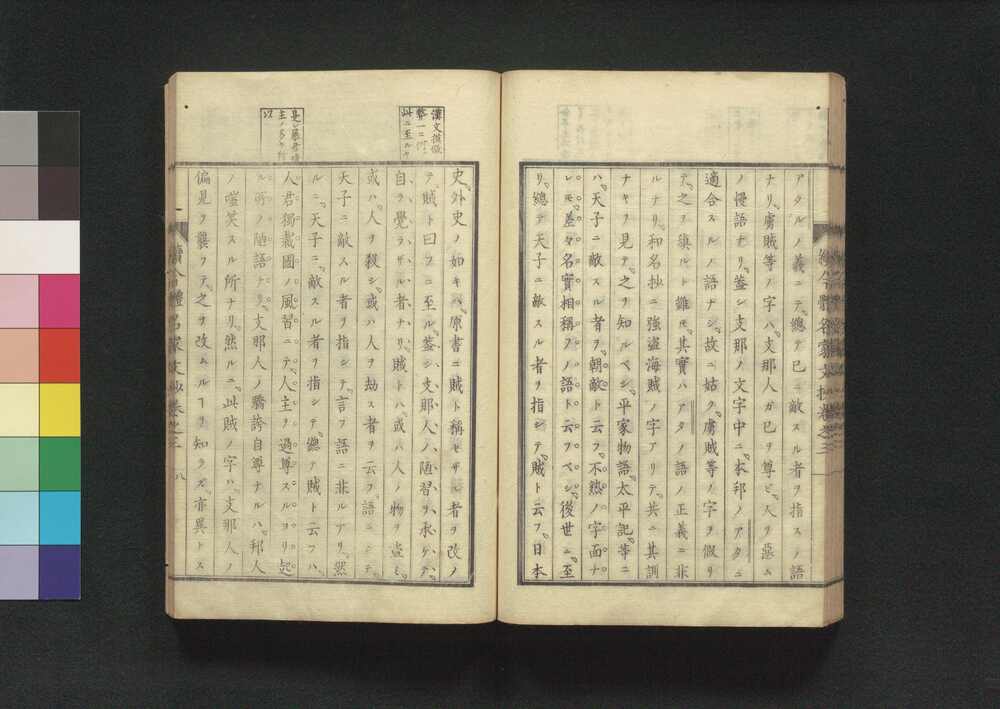 アタルノ義ニテ、總テ已ニ敵スル者ヲ指スノ語
ナリ、虜賊等ノ字ハ、支那人ガ已ヲ尊ビ、人ヲ惡ム
ノ慢語ナリ、蓋シ支那ノ文字中ニ、本邦ノアタニ
適合スルノ語ナシ、故ニ姑ク、虜賊等ノ字ヲ假リ
テ、之ヲ填ルト雖モ、其實ハアタノ語ノ正義ニ非
ルナリ、和名抄ニ強盗海賊ノ字アリテ、共ニ其訓
ナキヲ見テ、之ヲ知ルベシ、平家物語、太平記、等ニ
ハ、天子ニ敵スル者ヲ、朝敵ト云フ、不熟ノ字面ナ
レモ、差々名實相稱フノ語ト云フベシ、後世ニ、至
リ、總テ天子ニ敵スル者ヲ指シテ、賊ト云フ、日本
漢文模倣
弊一ニ
此ニ至ルカ
史外史ノ如キハ、原書ニ賊ト稱セザル者ヲ改メ
テ、賊ト曰フニ至ル、蓋シ、支那人ノ陋習ヲ承ケテ、
自ラ覺ラザル者ナリ、賊トハ、或ハ人ノ物ヲ盗ミ、
或ハ、人ヲ殺シ、或ハ人ヲ劫ス者ヲ云フ、語ニシテ、
天子ニ敵スル者ヲ指シテ、言フ語ニ非ルアリ、然
ルニ、天子ニ、敵スル者ヲ指シテ、總テ賊ト云フハ、
人君獨裁國ノ風習ニテ、人主ヲ過尊スルヨリ起
ル所ノ陋語ナリ、支那人ノ驕誇自尊ナルハ、邦人
ノ嗤笑スル所ナリ、然ルニ、此賊ノ字ハ、支那人ノ
偏見ヲ襲フテ、之ヲ改ムルヿヲ知ラズ、亦異トス
續今體名家文抄卷之三
八